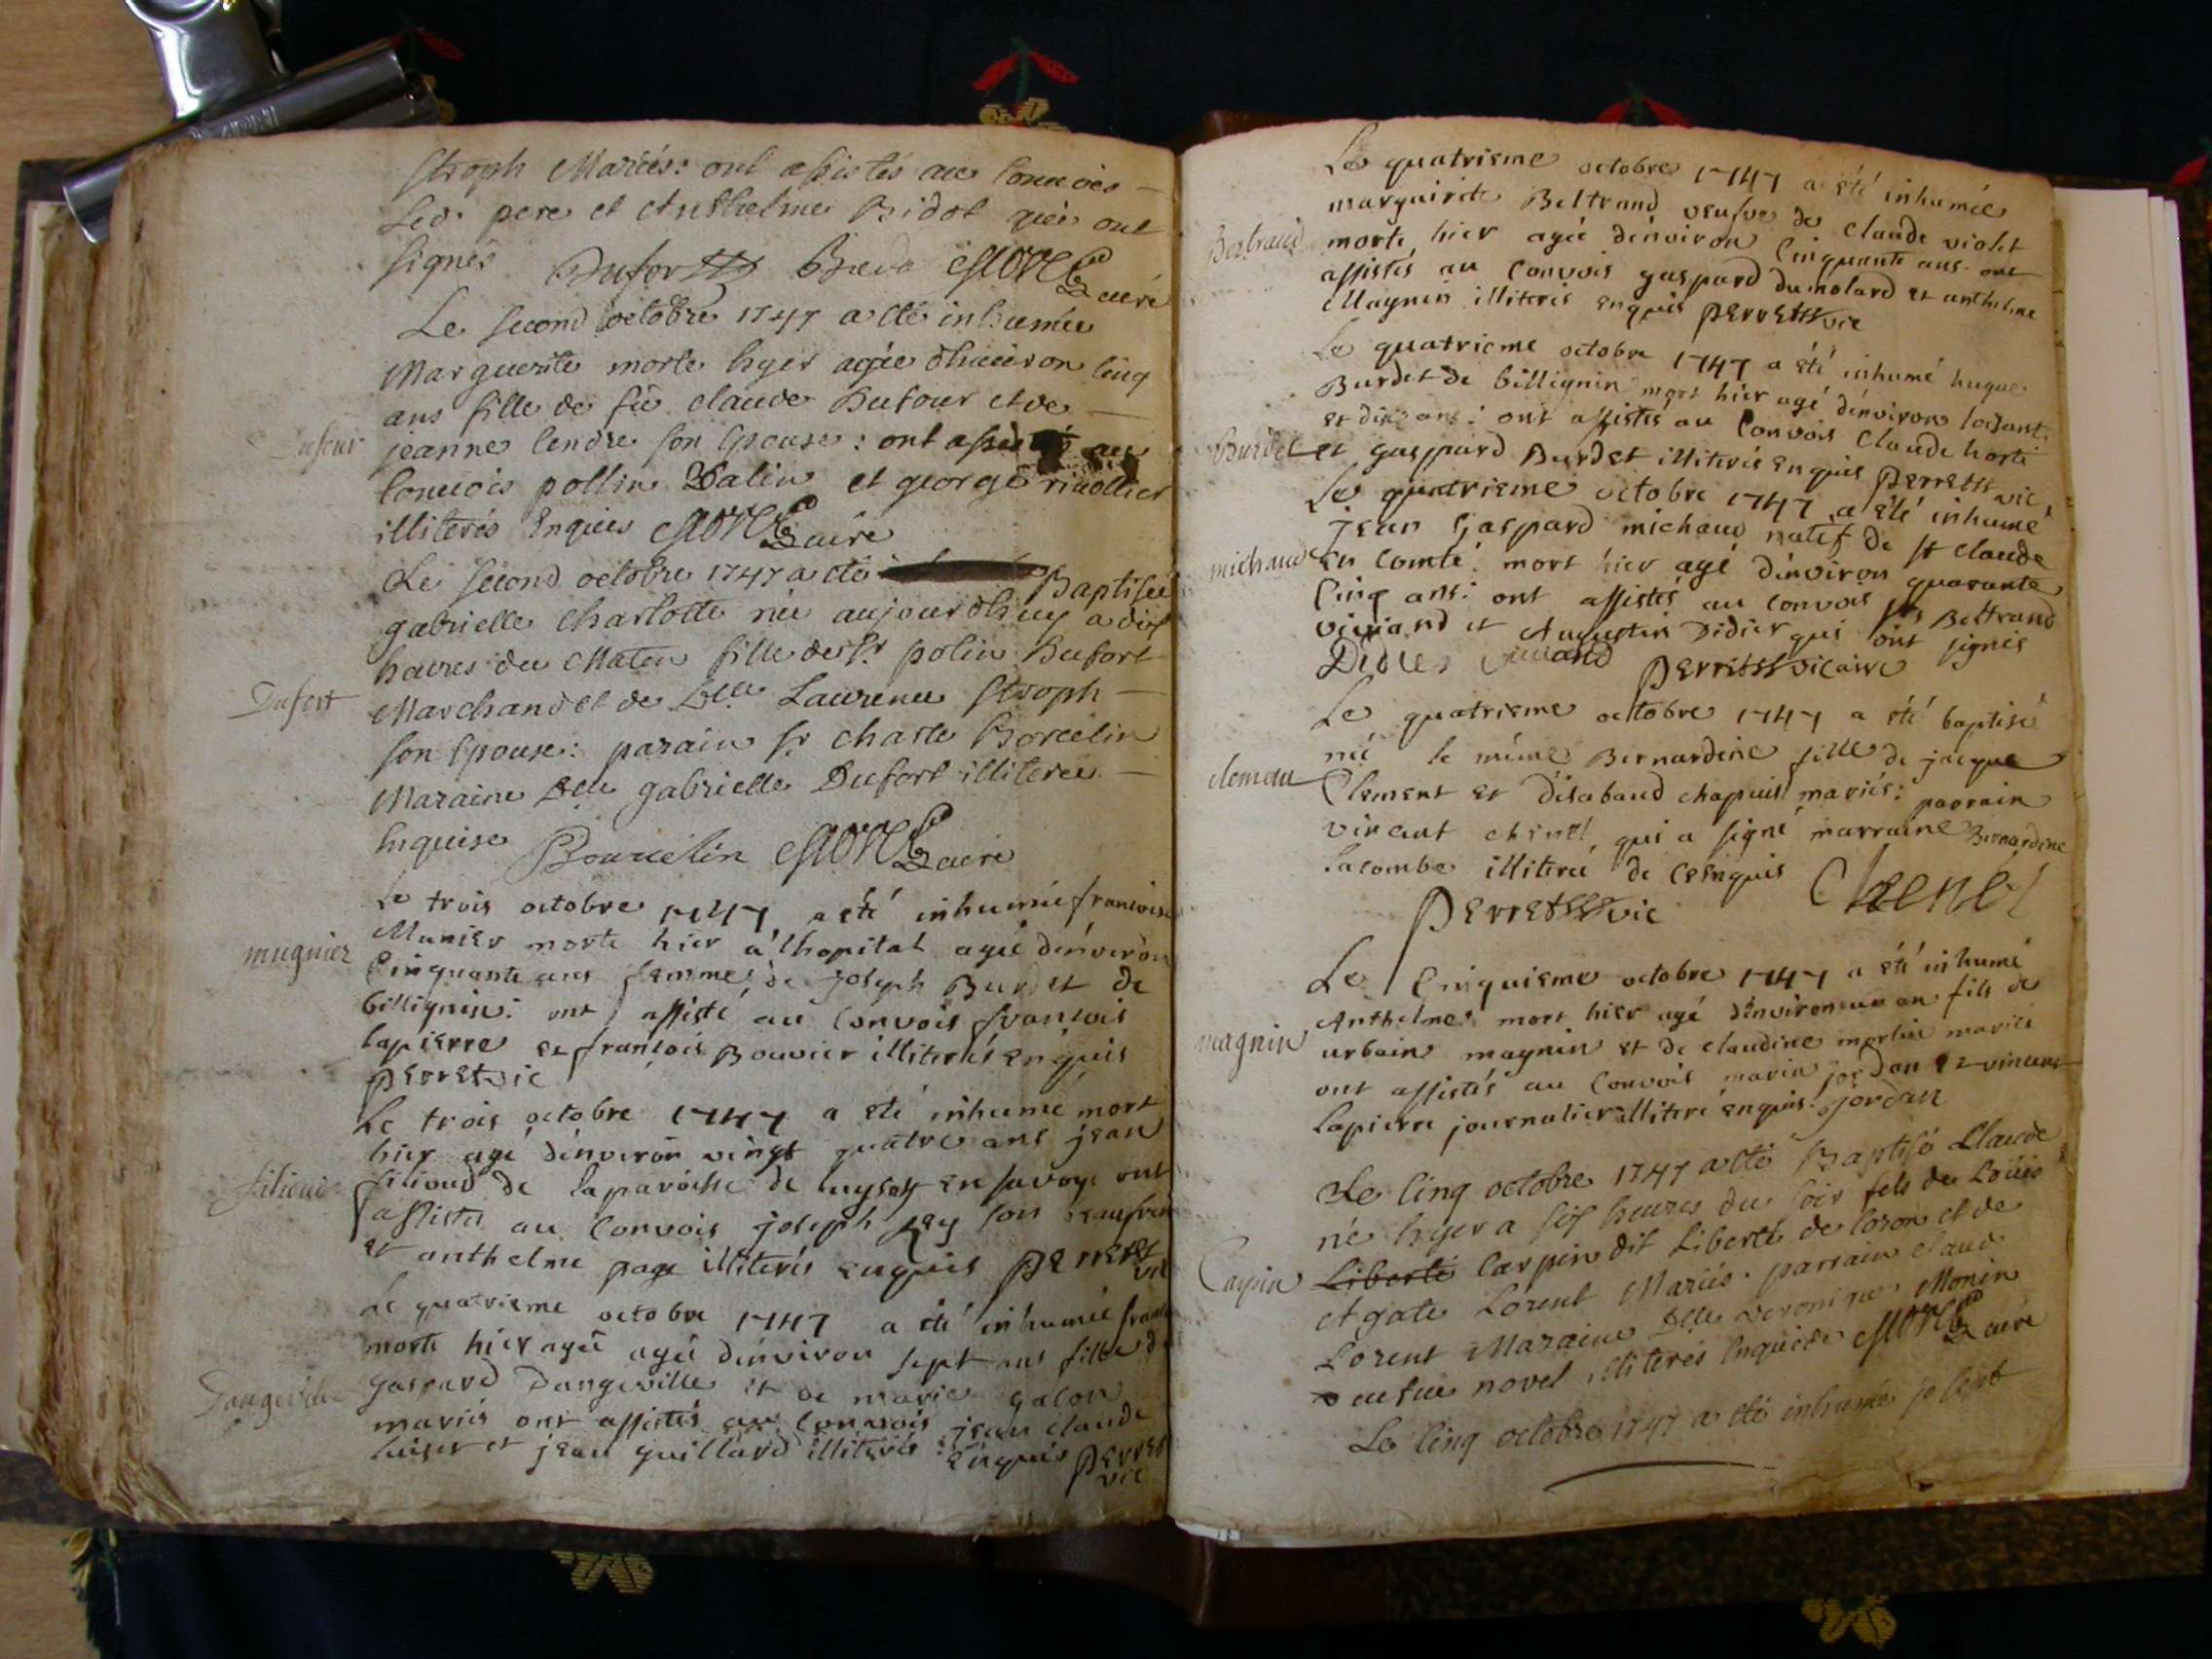 stroph Mariés: ont assistés au Convois
Led. pere et Anthelme Bidot qui ont
signés Dufort curé
Le second octobre 1747 a été inhumée
Marguerite morte hyer agée dhauiron cinq
ans fille de fü claude Dufour et de
Dufour
jeanne Cendre son Epouse: ont assistés au
Conuois pollin Balin et george riuollier
illiterés Enquis curé
Le second octobre 1747 a eté Baptisée
gabrielle Charlotte née aujourdhuy a dix
heures du Matin fille de sr polin Dufort
Dufort
Marchand et de Delle Laurence stroph
son Epouse: parain sr charle Borcelin
Maraine Delle gabrielle Dufort illiterée
Enquise Bourcelin curé
Le trois octobre 1747 a eté inhumée francoise
mugnier
Munier morte hier a lhopital agée dénviron
Cinquante ans femme de joseph Burdet de
billignin: ont assisté au Convois francois
lapierre et francois Bouvier illiterés enquis
perret vic
Le trois octobre 1747 a eté inhumé mort
hier agé dénviron vingt quatre ans jean
filioud
filioud de la paroisse de en savoye ont
assistés au Convois joseph son beaufrere
et anthelme page illiterés enquis perret vic
Le quatrieme octobre 1747 a eté inhumée
morte hier agée agée dénviron sept ans fille de
Dangeville
gaspard Dangeville et de marie galon
mariés ont assistés au Convois jean claude
et jean guillard illiterés enquis perret
vic
Le quatrieme octobre 1747 a eté inhumée
marguirite Beltrand veufve de claude violet
Bertrand
morte hier agée dénviron Cinquante ans ont
assistés au Convois gaspard dumolard et anthelme
Magnin illiteris enquis perret vic
Le quatrieme octobre 1747 a eté inhumé hugue
Burdet de billignin mort hier agé dénviron soixant
et dix ans: ont assistés au Convois Claude horte
Burdet
et gaspard Burdet illiteris enquis perret vic
Le quatrieme octobre 1747 a eté inhumé
jean gaspard michaud natif de st claude
michaud
en Comté mort hier agé dénviron quarante
Cinq ans: ont assistés au Convois Beltrand
viviand et Augustin Didier qui ont signés
Didier viviand perret vicaire
Le quatrieme octobre 1747 a eté baptisé
née le même Bernardine fille de jacque
clement
Clement et Disabaud chapuis mariés: parrain
vincent chenel qui a signé marraine Bernardine
lacombe illiterée de ce enquis Chenel
perret vic
Le Cinquieme octobre 1747 a eté inhumé
Anthelme mort hier agé dénviron un an fils de
magnin
urbain magnin et de claudine merlin mariés
ont assistés au Convois marin jordan et vincent
lapierre journalier illiteré enquis. jordan
Le Cinq octobre 1747 a eté Baptisé Claude
né hyer a six heures du soir fils de Loüis
Carpin
Liberté Carpin dit Liberté de Coron et de
et gate Lorent Mariés. parrain claude
Lorent Maraine Delle veronique Monin
veufue novel illiterés Enquise curé
Le Cinq octobre 1747 a eté inhumé joseph